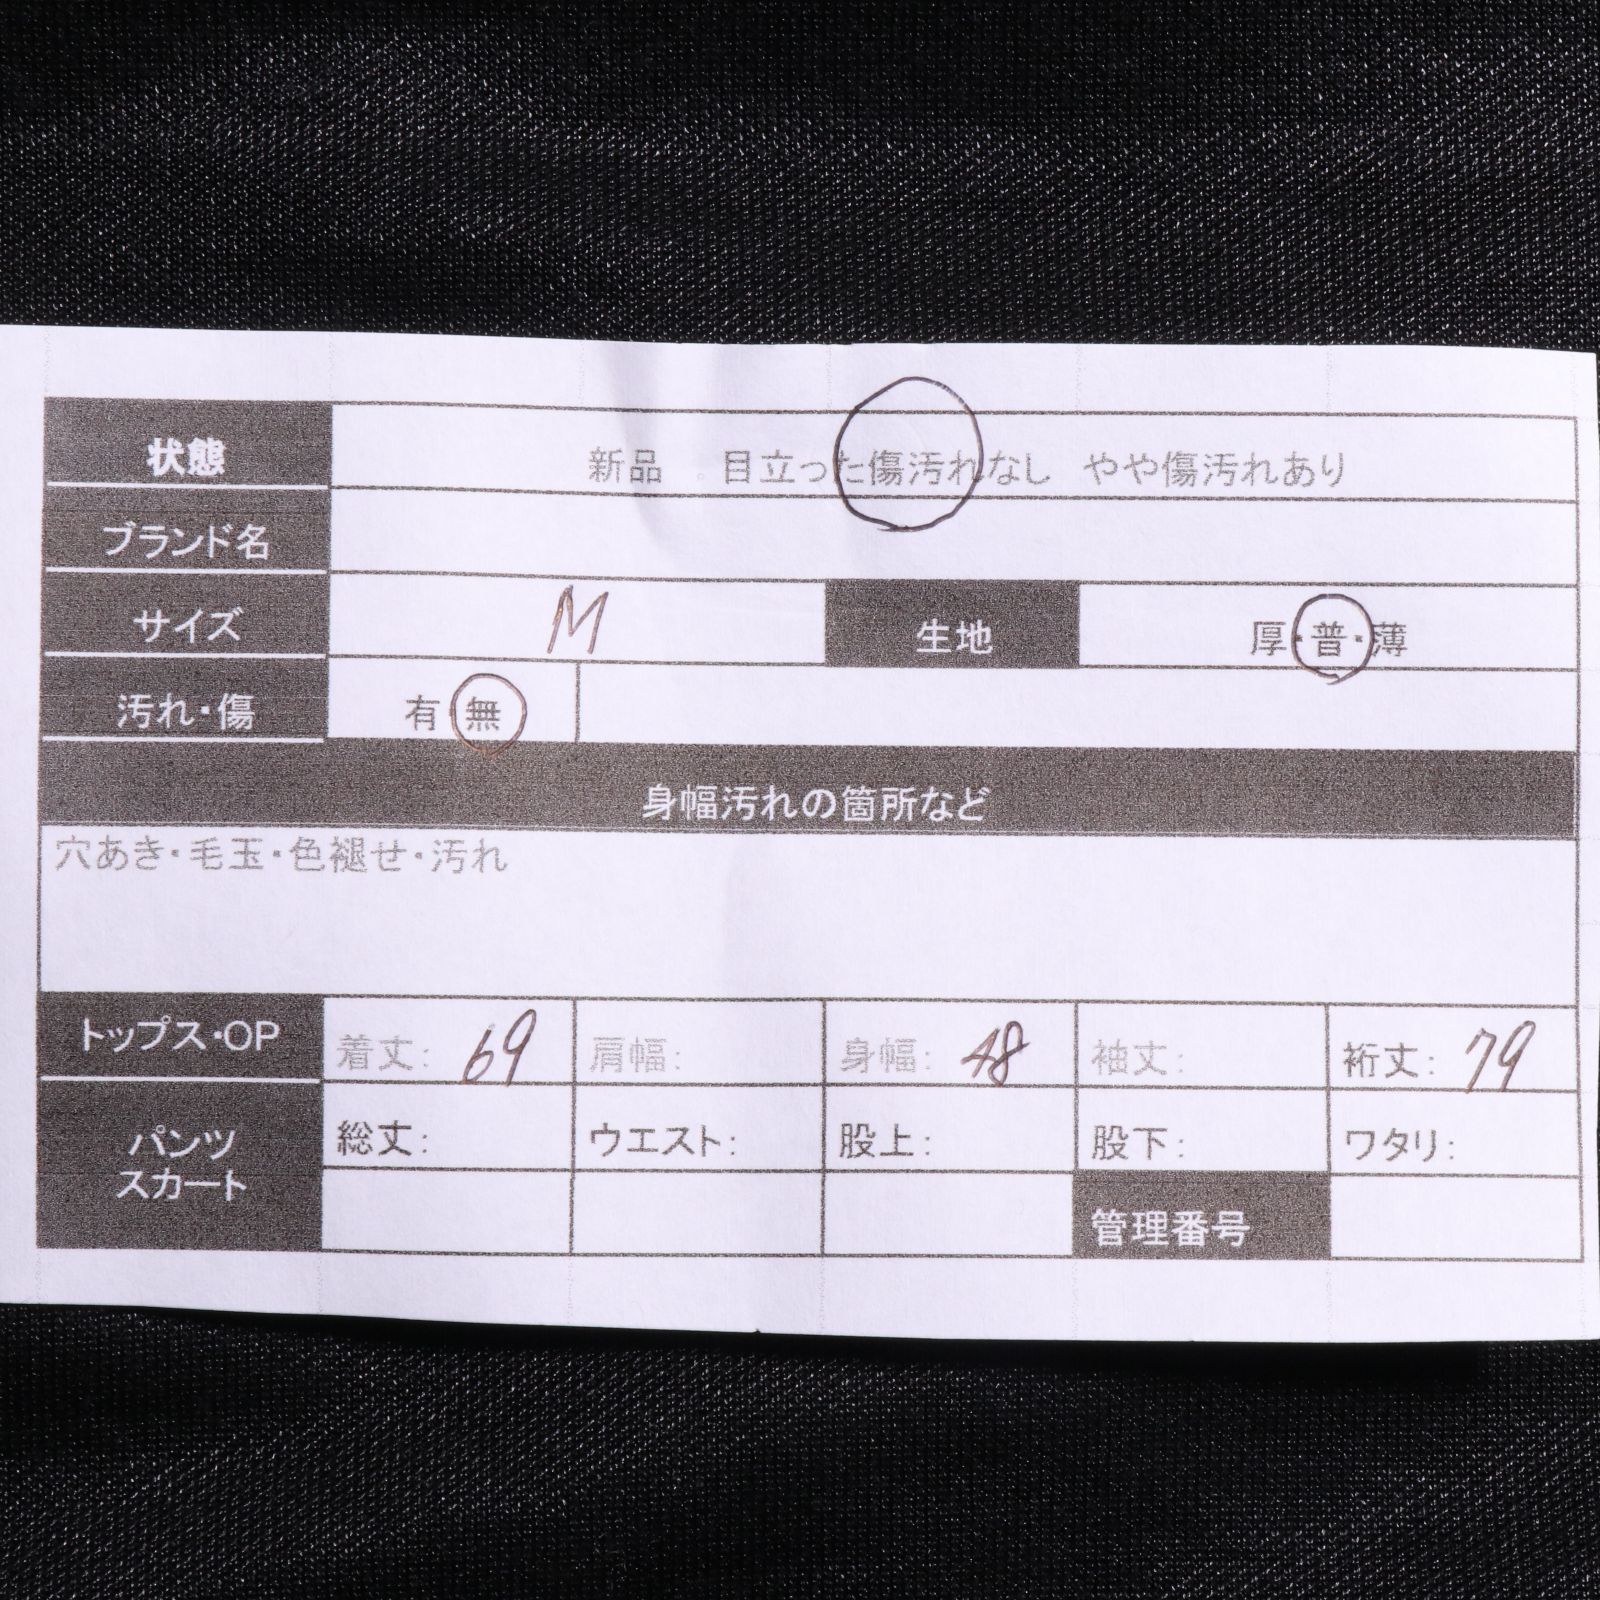 状態 新品 目立った傷汚れなし やや傷汚れあり
ブランド名
サイズ M 生地 厚・普・薄
汚れ・傷 有 無
身幅汚れの箇所など
穴あき・毛玉・色褪せ・汚れ
トップス・OP 着丈: 69 肩幅: 身幅: 48 袖丈: 裄丈: 79
パンツ 総丈: ウエスト: 股上: 股下: ワタリ:
スカート
管理番号